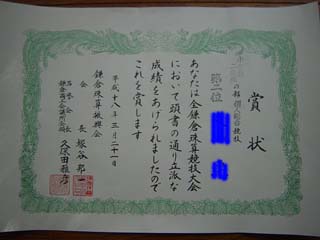 賞状
の部 個人総合競技
第二位
あなたは全鎌倉珠算競技大会
において頭書の通り立派な
成績をあげられましたので
これを賞します
平成十八年三月二十一日
鎌倉珠算振興会
会長